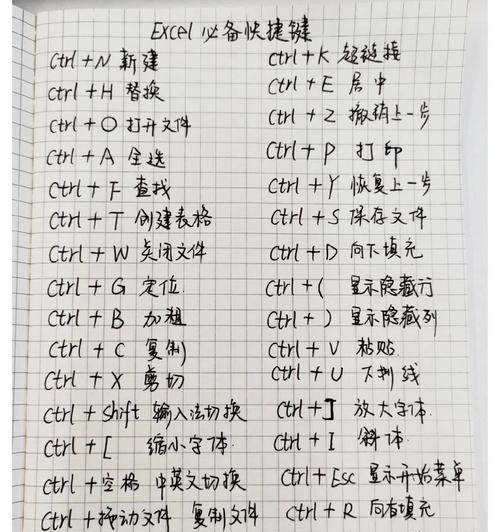 Excel 必备快捷键
Ctrl + N 新建
Ctrl + H 替换
Ctrl + O 打开文件
Ctrl + A 全选
Ctrl + F 查找
Ctrl + T 创建表格
Ctrl + W 关闭文件
Ctrl + G 定位
Ctrl + B 加粗
Ctrl + C 复制
Ctrl + X 剪切
Ctrl + Shift 输入法切换
Ctrl + [ 缩小字体
Ctrl + 空格 中英文切换
Ctrl + 拖动文件 复制文件
Ctrl + K 超链接
Ctrl + E 居中
Ctrl + Z 撤销上一步
Ctrl + P 打印
Ctrl + Y 恢复上一步
Ctrl + S 保存文件
Ctrl + D 向下填充
Ctrl + ( 显示隐藏行
Ctrl + ) 显示隐藏列
Ctrl + V 粘贴
Ctrl + U 下划线
Ctrl + ] 放大字体
Ctrl + I 斜体
Ctrl + Esc 显示开始菜单
Ctrl + R 向右填充